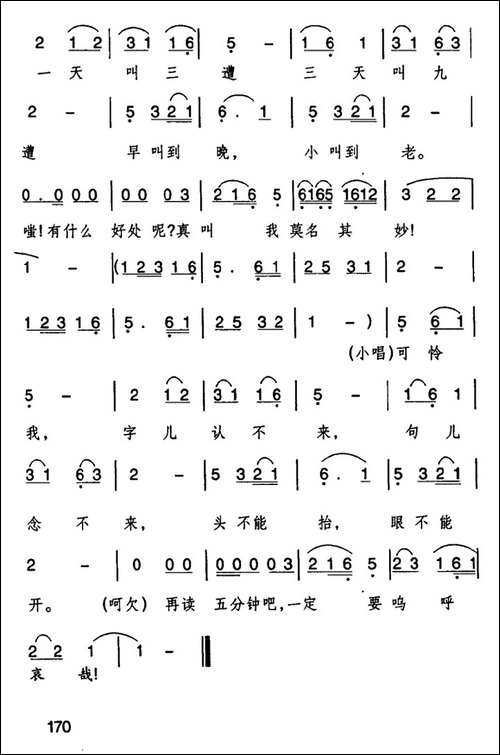 2 1 2 | 3 1 1 6 | 5 - | 1 6 1 | 3 1 6 3 |
一天 叫三 遭 三天 叫九
2 - | 5 3 2 1 | 6 . 1 | 5 3 2 1 | 2 - |
遭 早叫到 晚， 小叫到 老。
0 . 0 0 0 0 | 0 0 0 3 | 2 1 6 5 | 6 1 6 5 1 6 1 2 | 3 2 2 |
嗤!有什么 好处呢?真叫 我莫名其 妙!
1 - | (1 2 3 1 6 | 5 . 6 1 | 2 5 3 1 | 2 - |
1 2 3 1 6 | 5 . 6 1 | 2 5 3 2 | 1 - ) | 5 6 1 |
(小唱)可怜
5 - | 2 1 2 | 3 1 1 6 | 5 - | 1 6 1 |
我， 字儿 认不 来， 句儿
3 1 6 3 | 2 - | 5 3 2 1 | 6 . 1 | 5 3 2 1 |
念不 来， 头不能 抬， 眼不能
2 - | 0 0 0 | 0 0 0 0 0 3 | 2 1 6 5 | 2 3 1 6 1 |
开。 (呵欠) 再读 五分钟吧，一定 要呜呼
2 2 1 | 1 - ‖
哀哉!
170